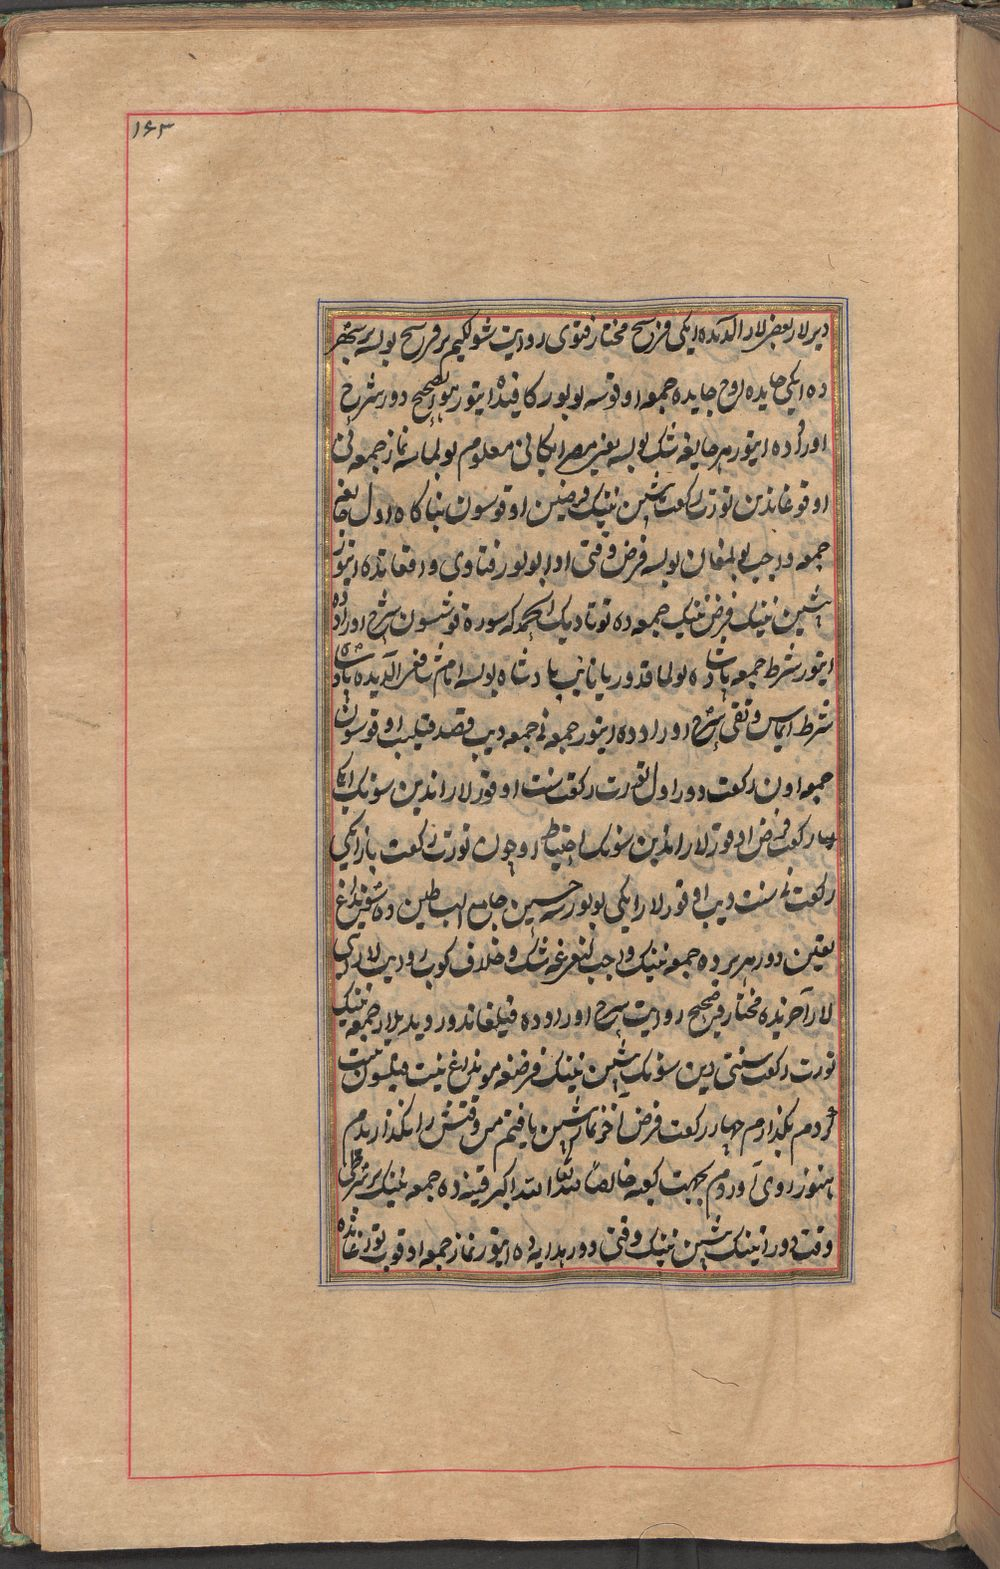 ۱۶۳
دیرلار بعضی لار الدیده ایکی فرسخ مختار فتوی روایت شولکیم بر فرسخ بولسه بر شهر
ده ایکی جایده اوچ جایده جمعه اوقوسه بولور کافیده ایتور هو الصحیح دور شرح
اوراده ایتور هر جایغه شک بولسه یعنی مصر ایکانی معلوم بولماسه نماز جمعه نی
اوقوغاندین تورت رکعت پیشین نینک فرضین اوقوسون بناکاه اول جایغه
جمعه واجب بولمغان بولسه فرض وقتی ادا بولور فتاوی واقعاتده ایتور
پیشین نینک فرض نینک جمعه ده تورتادیک الحمدکه سوره قوشسون شرح اوراده
ایتور شرط جمعه پادشاه بولماقدور یا نایب پادشاه بولسه امام شافعی الدیده پادشاه
شرط ایماس وتقی شرح اوراده ده ایتور جمعه نی جمعه دیب قصد قیلیب اوقوسون
جمعه اون رکعت دور اول تورت رکعت سنت اوقورلار اندین سونک ایکی
رکعت فرض اوقورلار اندین سونک احتیاط اوچون تورت رکعت یاز ایکی
رکعت نی سنت دیب اوقورلار ایکی بولور حسین جامع البساطین ده شونداغ
یقین دور هر یرده جمعه نینک واجب لیغیغه شک و خلاف کوب روایت لاردی
لار آخرنده مختار صحیح روایت شرح اوراده قیلغاندور ویدیلار جمعه نینک
تورت رکعت سنتی دین سونک پیشین نینک فرضنه مونداغ نیت قیلسون نیت
کردم بگذارم چهار رکعت فرض آخر نماز پیشین یافتم من وقتش را نگذاریدم
هنوز روی آوردم بجهت کعبه خالصا لله تعالی الله اکبر قنیه ده جمعه نینک بر شرطی
وقت دور انینک پیشین نینک وقتی دور هدایه ده ایتور نماز جمعه اوقوب تورغانده